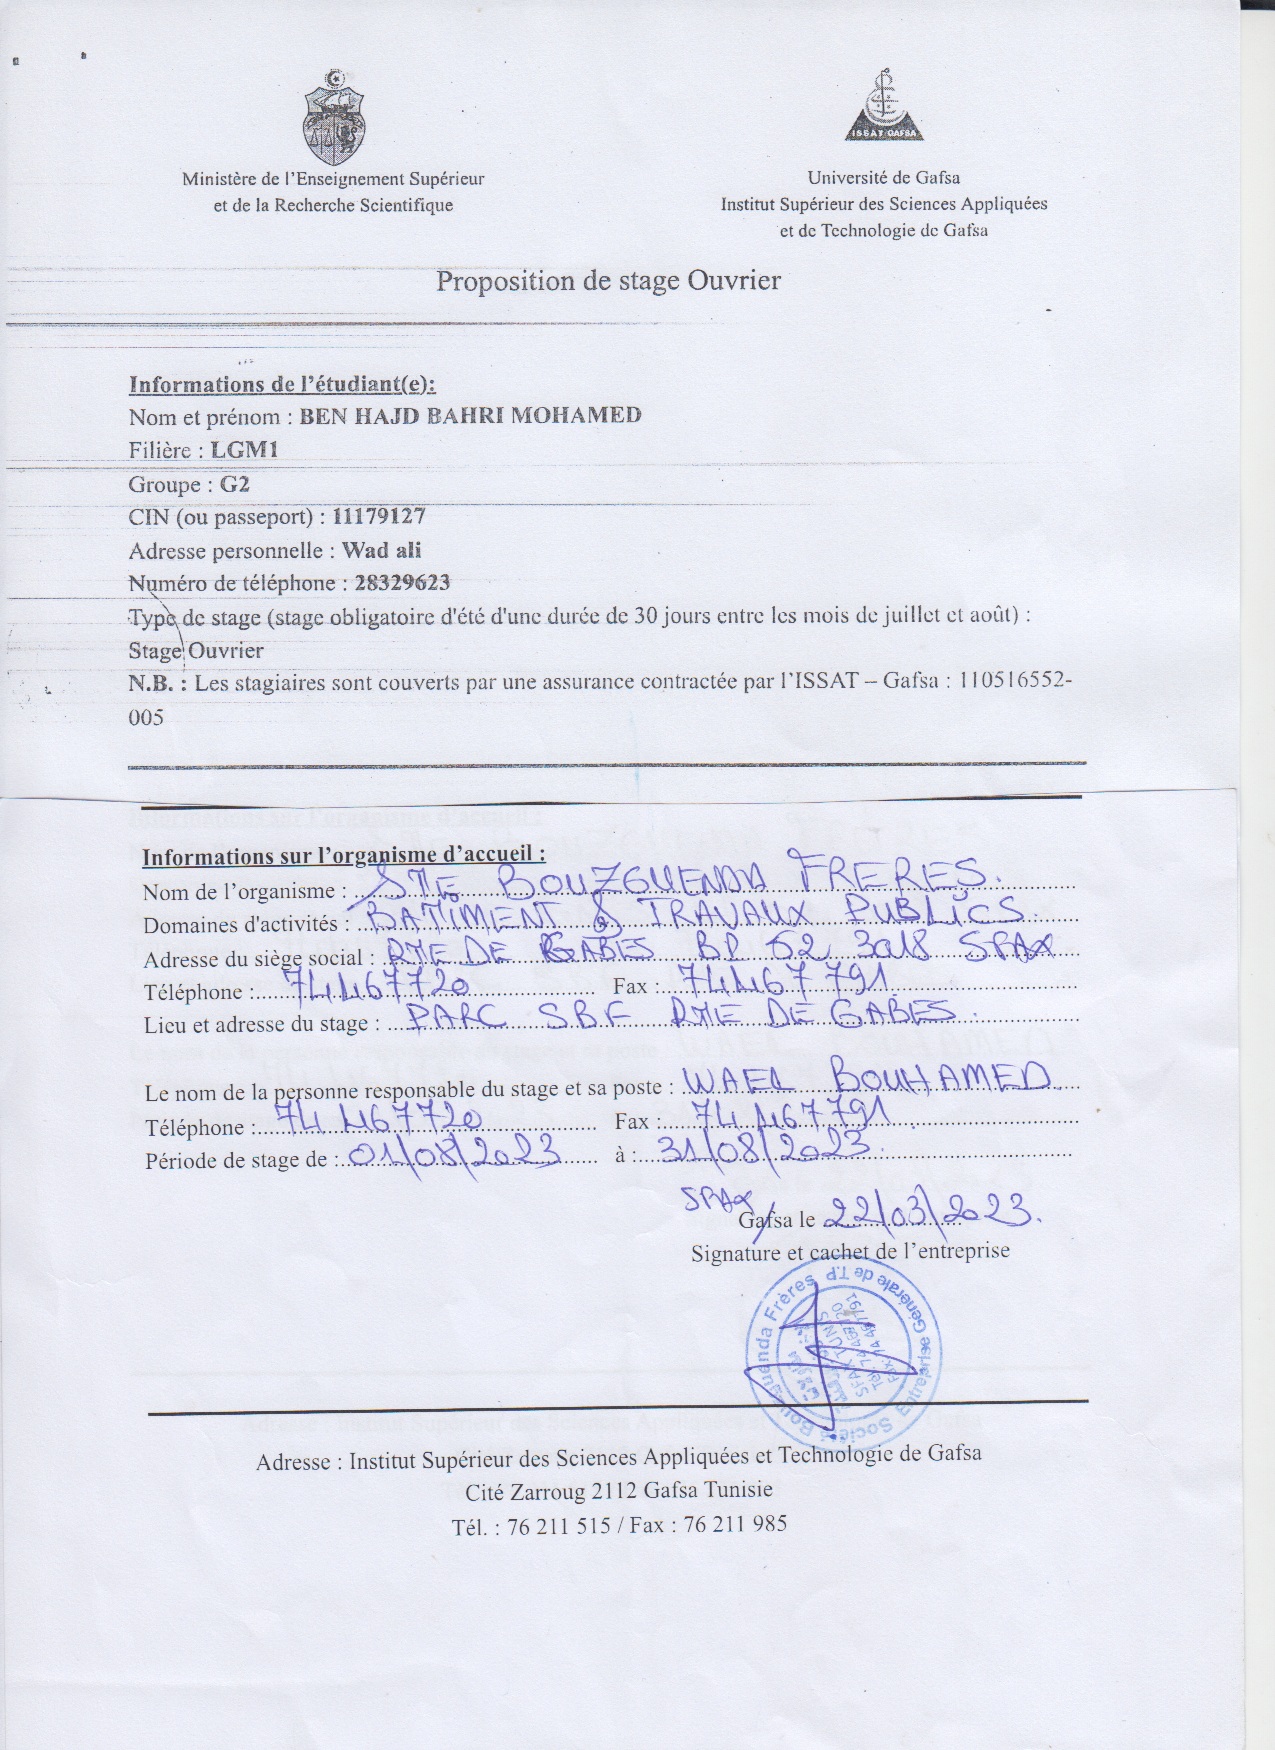 ISSAT GAFSA
Ministère de l'Enseignement Supérieur
et de la Recherche Scientifique
Université de Gafsa
Institut Supérieur des Sciences Appliquées
et de Technologie de Gafsa
Proposition de stage Ouvrier
Informations de l'étudiant(e):
Nom et prénom : BEN HAJD BAHRI MOHAMED
Filière : LGM1
Groupe : G2
CIN (ou passeport) : 11179127
Adresse personnelle : Wad ali
Numéro de téléphone : 28329623
Type de stage (stage obligatoire d'été d'une durée de 30 jours entre les mois de juillet et août) :
Stage Ouvrier
N.B. : Les stagiaires sont couverts par une assurance contractée par l'ISSAT – Gafsa : 110516552-
005
Informations sur l'organisme d'accueil :
Nom de l'organisme : STE BOUZGUENDA FRERES.
Domaines d'activités : BATIMENT & TRAVAUX PUBLICS.
Adresse du siège social : RTE DE GABES BP 62 3018 SFAX
Téléphone : 74467720 Fax : 74467791
Lieu et adresse du stage : PARC SBF RTE DE GABES.
Le nom de la personne responsable du stage et sa poste : WAEL BOUHAMED
Téléphone : 74467720 Fax : 74467791.
Période de stage de : 01/08/2023 à : 31/08/2023.
SFAX
Gafsa le 22/03/2023.
Signature et cachet de l'entreprise
Société Bouzguenda Frères
Entreprise Générale de T.P
Adresse : Institut Supérieur des Sciences Appliquées et Technologie de Gafsa
Cité Zarroug 2112 Gafsa Tunisie
Tél. : 76 211 515 / Fax : 76 211 985